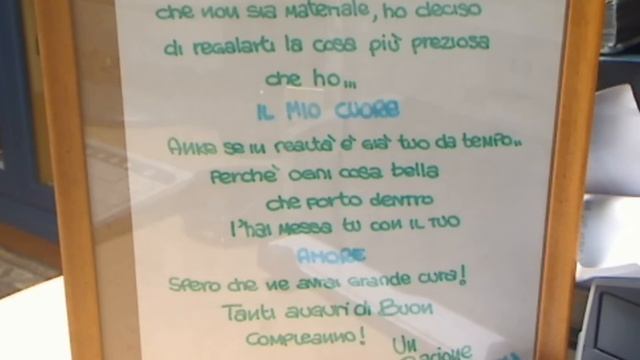 che non sia materiale, ho deciso
di regalarti la cosa più preziosa
che ho...
IL MIO CUORE
Anke se in realtà è già tuo da tempo..
Perchè ogni cosa bella
che porto dentro
l'hai messa tu con il tuo
AMORE
Spero che ne avrai grande cura!
Tanti auguri di Buon
Compleanno! Un